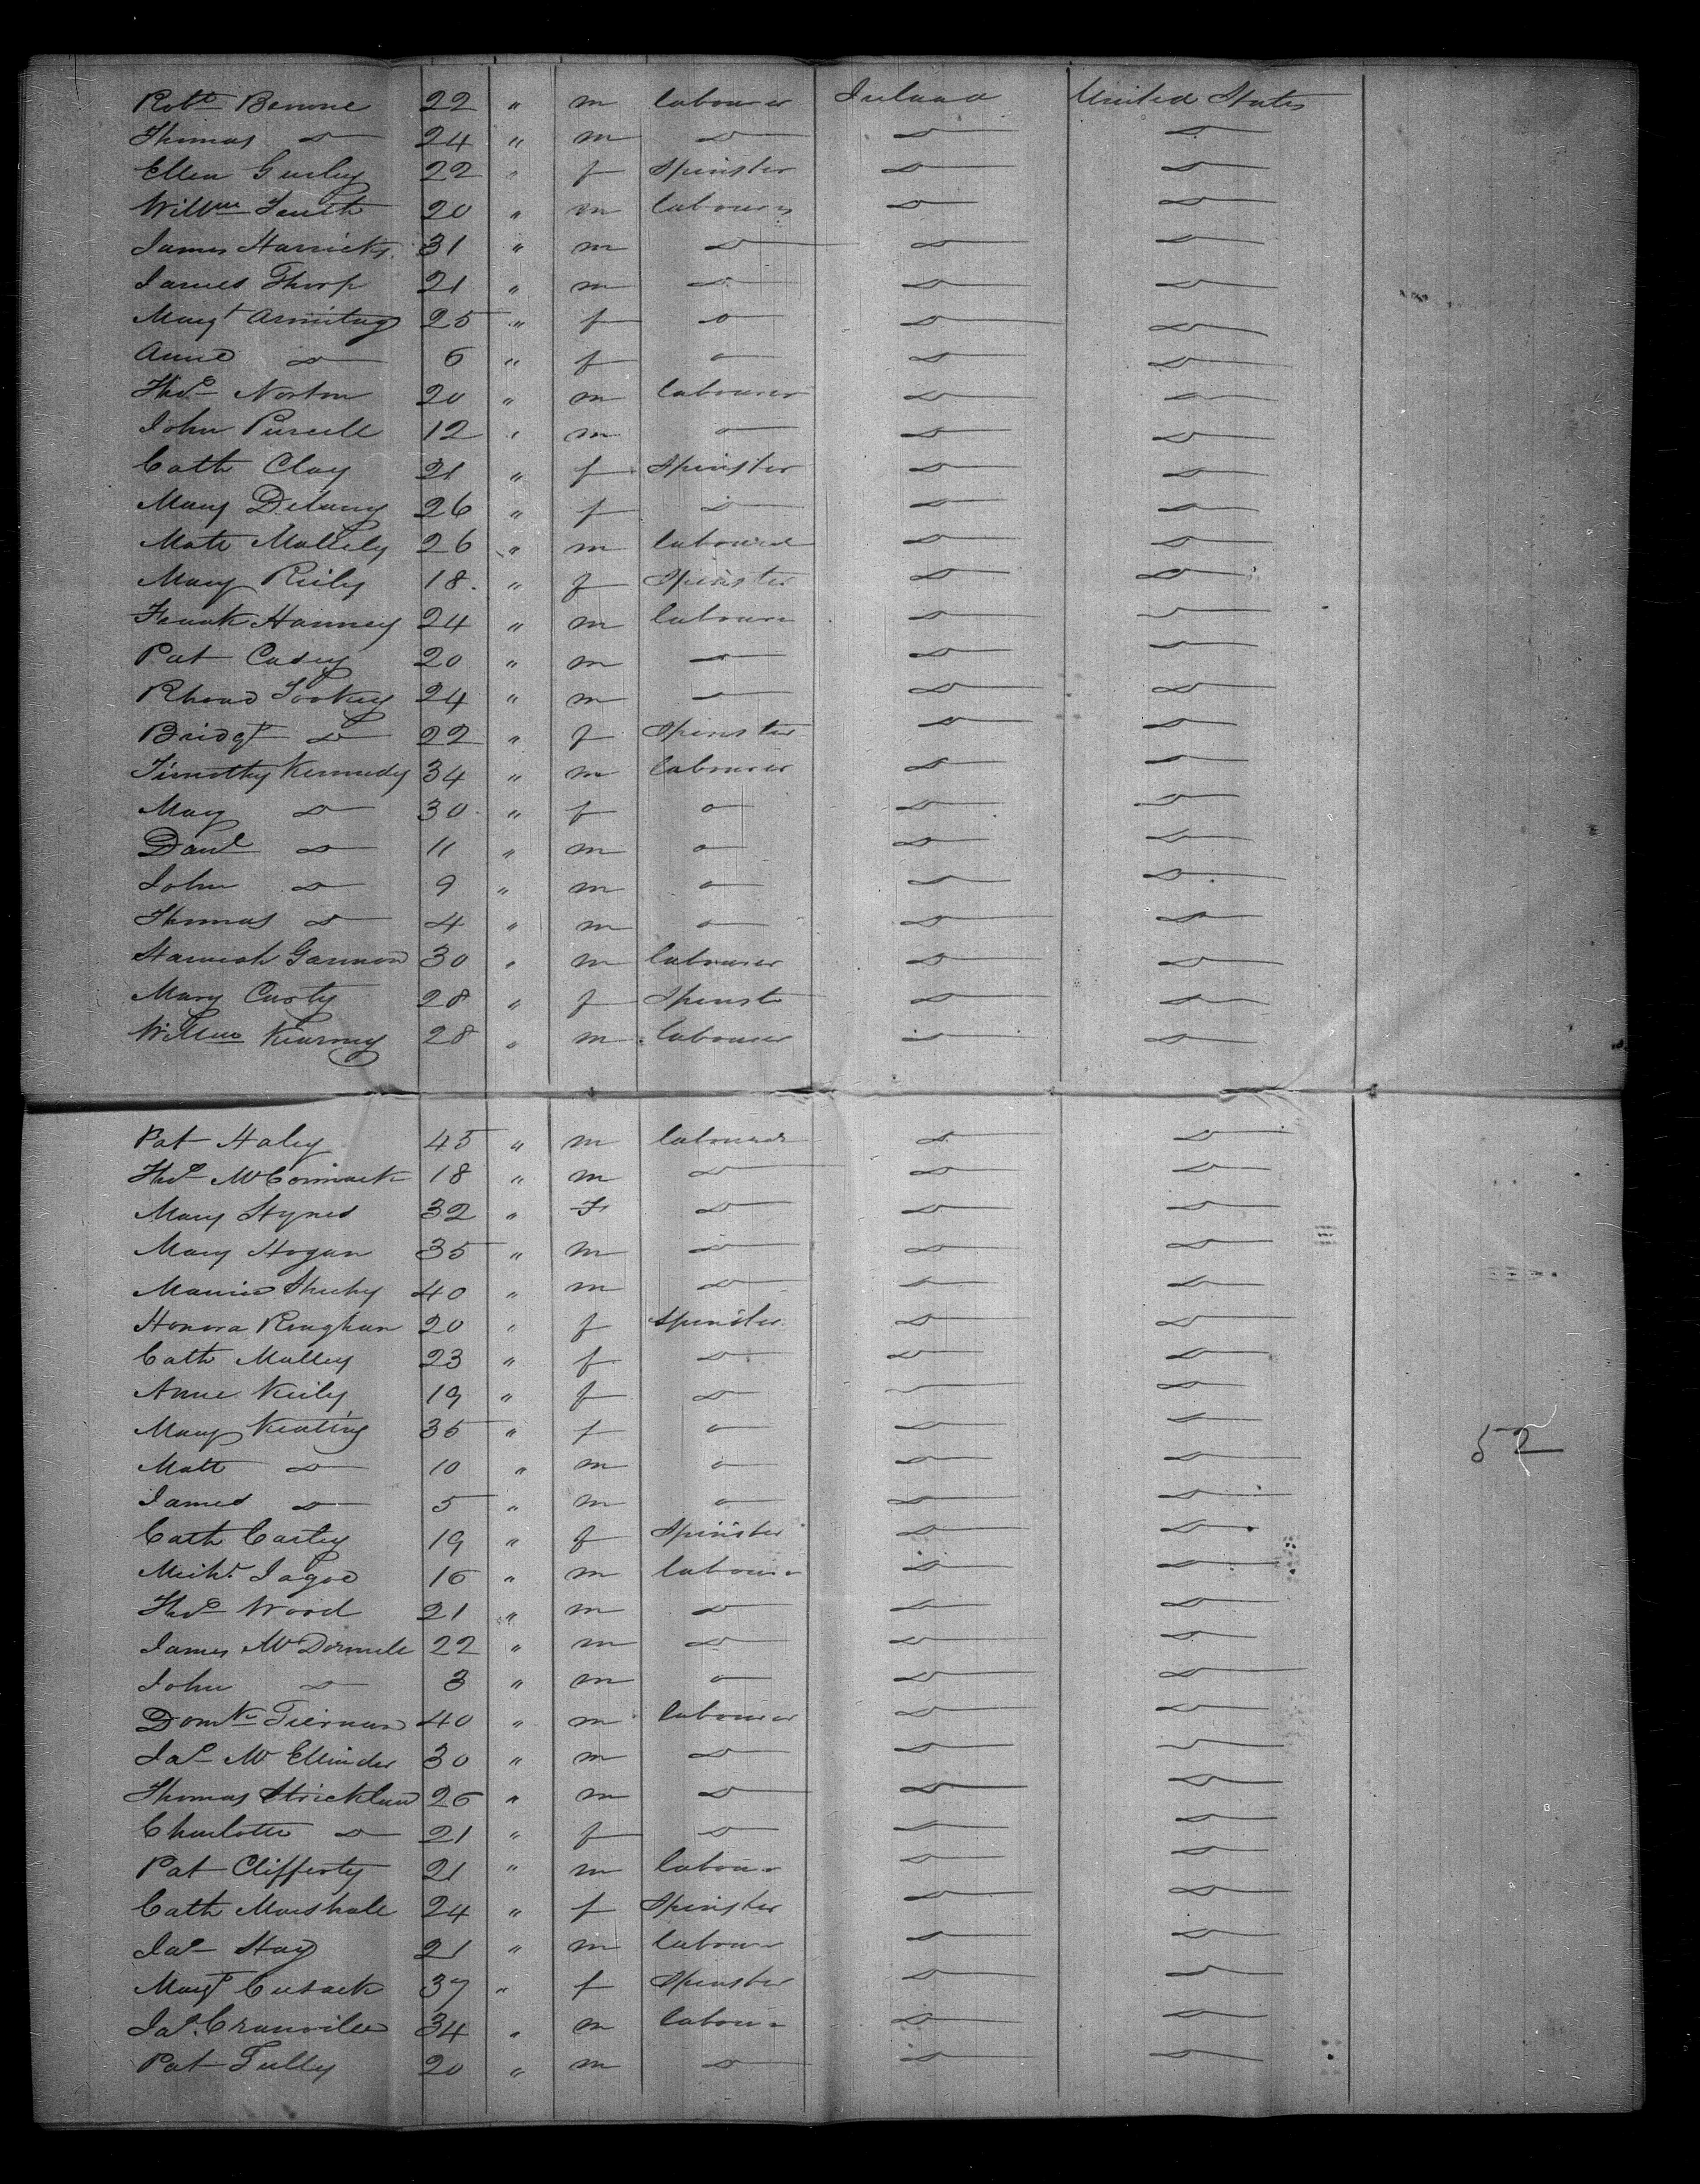 Robt Benure 22 " m labourer Ireland United States
Thomas do 24 " m do do do
Ellen Gurley 22 " f Spinster do do
Willm Smith 20 " m labourer do do
James Harricks 31 " m do do do
James Thorp 21 " m do do do
Margt Armitag 25 " f o do do
Anne do 6 " f o do do
Thos Norton 20 " m labourer do do
John Purcell 12 " m o do do
Cath Clay 21 " f Spinster do do
Mary Delany 26 " f do do do
Matt Mallely 26 " m labourer do do
Mary Reily 18 " f Spinster do do
Frank Hanney 24 " m labourer do do
Pat Casey 20 " m do do do
Rhoad Tookey 24 " m do do do
Bridgt do 22 " f Spinster do do
Timothy Kennedy 34 " m labourer do do
Mary do 30 " f o do do
Danl do 11 " m o do do
John do 9 " m o do do
Thomas do 4 " m o do do
Gannon 30 " m labourer do do
Mary Carty 28 " f Spinst do do
Willm Kearney 28 " m labourer do do
Pat Haley 45 " m labourer do do
Thos McCormack 18 " m do do do
Mary Hynes 32 " F do do do
Mary Hogan 35 " m do do do
Maurice Sheehy 40 " m do do do
Honora Reaghan 20 " f Spinster do do
Cath Malley 23 " f do do do
Anne Keily 19 " f do do do
Mary Keating 35 " f o do do 52
Matt do 10 " m o do do
James do 5 " m o do do
Cath Carley 19 " f Spinster do do
Michl Jagoe 16 " m labourer do do
Thos Wood 21 " m do do do
James McDormell 22 " m do do do
John do 3 " m o do do
Domk Tiernan 40 " m labourer do do
Jas McEllinder 30 " m do do do
Thomas Stricklan 26 " m do do do
Charlotte do 21 " f do do do
Pat Clifferty 21 " m labour do do
Cath Marshall 24 " f Spinster do do
Jas Hay 21 " m labour do do
Margt Cusack 37 " f Spinster do do
Jas Cranville 34 " m labour do do
Pat Tully 20 " m do do do